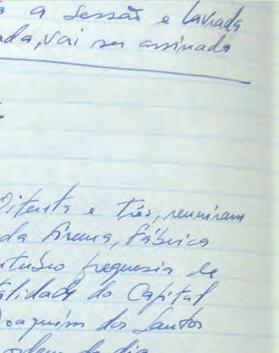 a a sessão e lavrada
ada, vai ser assinada
Oitenta e três, reuniram
da firma, Fábrica
freguesia de
alidade do Capital
oaquim dos Santos
ordem do dia